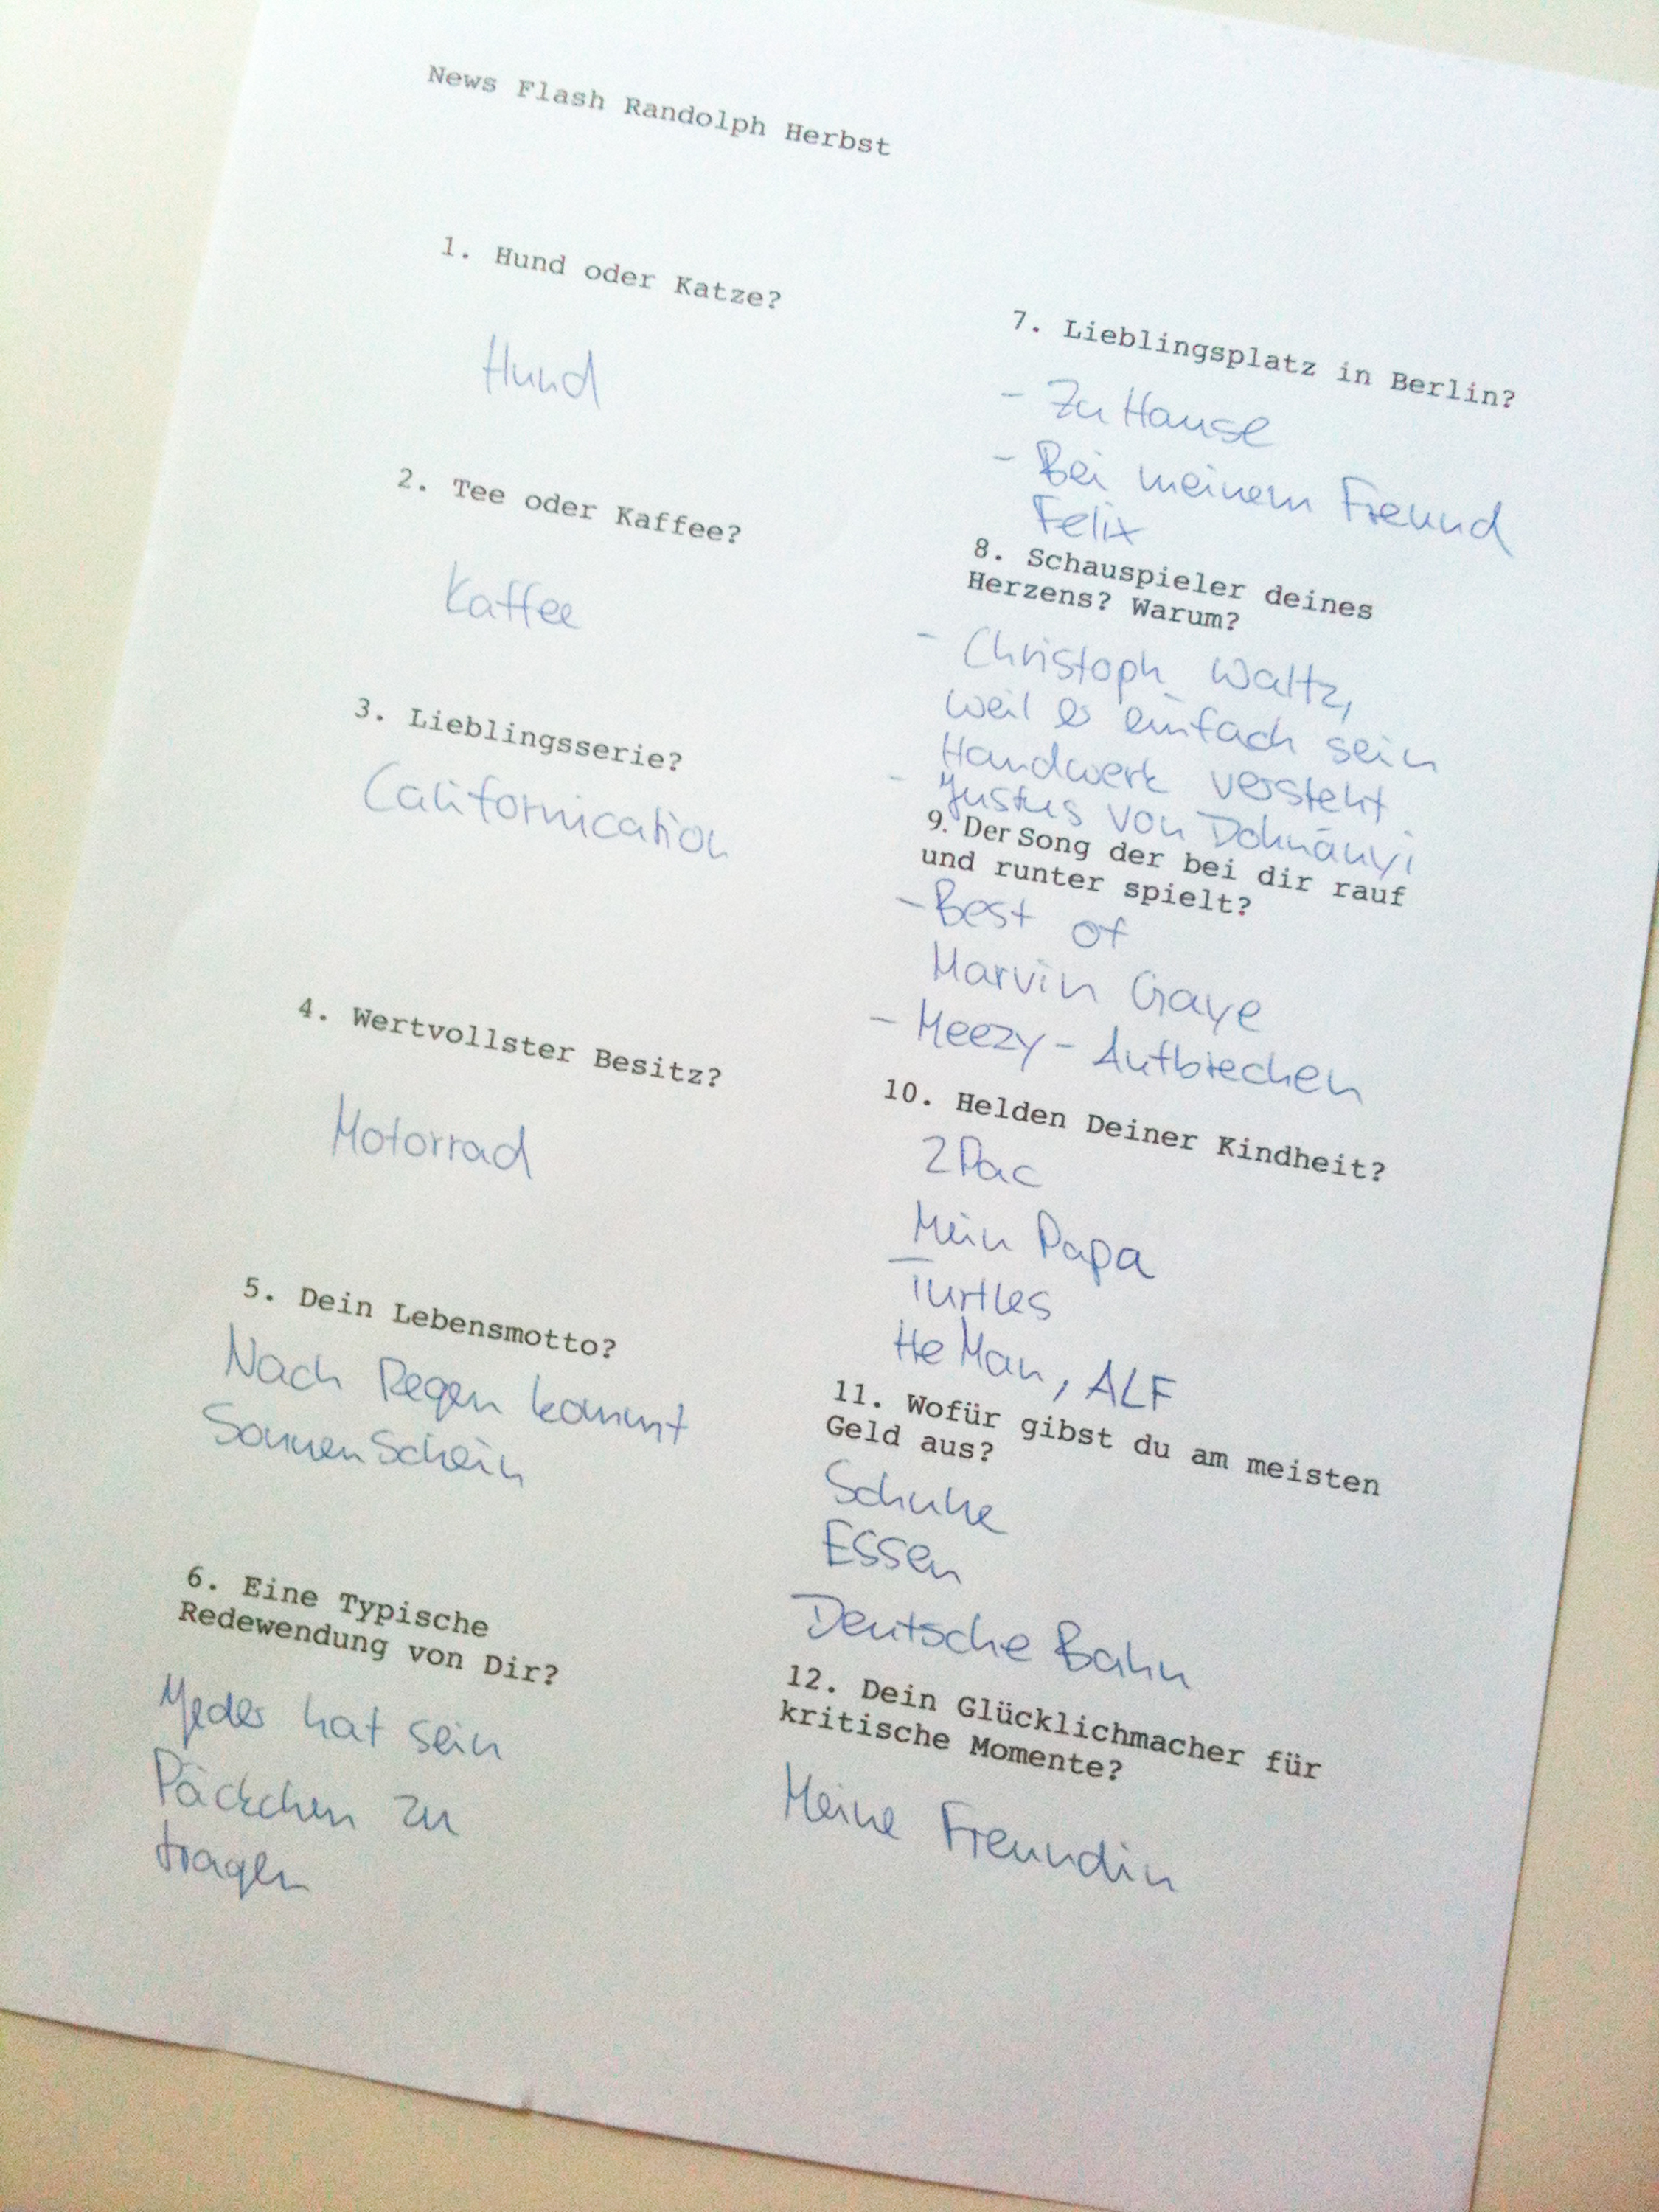 News Flash Randolph Herbst
1. Hund oder Katze?
Hund
2. Tee oder Kaffee?
Kaffee
3. Lieblingsserie?
Californication
4. Wertvollster Besitz?
Motorrad
5. Dein Lebensmotto?
Nach Regen kommt
Sonnenschein
6. Eine Typische
Redewendung von Dir?
Jeder hat sein
Päckchen zu
tragen
7. Lieblingsplatz in Berlin?
- Zu Hause
- Bei meinem Freund
Felix
8. Schauspieler deines
Herzens? Warum?
- Christoph Waltz,
weil er einfach sein
Handwerk versteht
- Justus von Dohnányi
9. Der Song der bei dir rauf
und runter spielt?
- Best of
Marvin Gaye
- Meezy - Aufbrechen
10. Helden Deiner Kindheit?
2Pac
Mein Papa
Turtles
He Man, ALF
11. Wofür gibst du am meisten
Geld aus?
Schuhe
Essen
Deutsche Bahn
12. Dein Glücklichmacher für
kritische Momente?
Meine Freundin